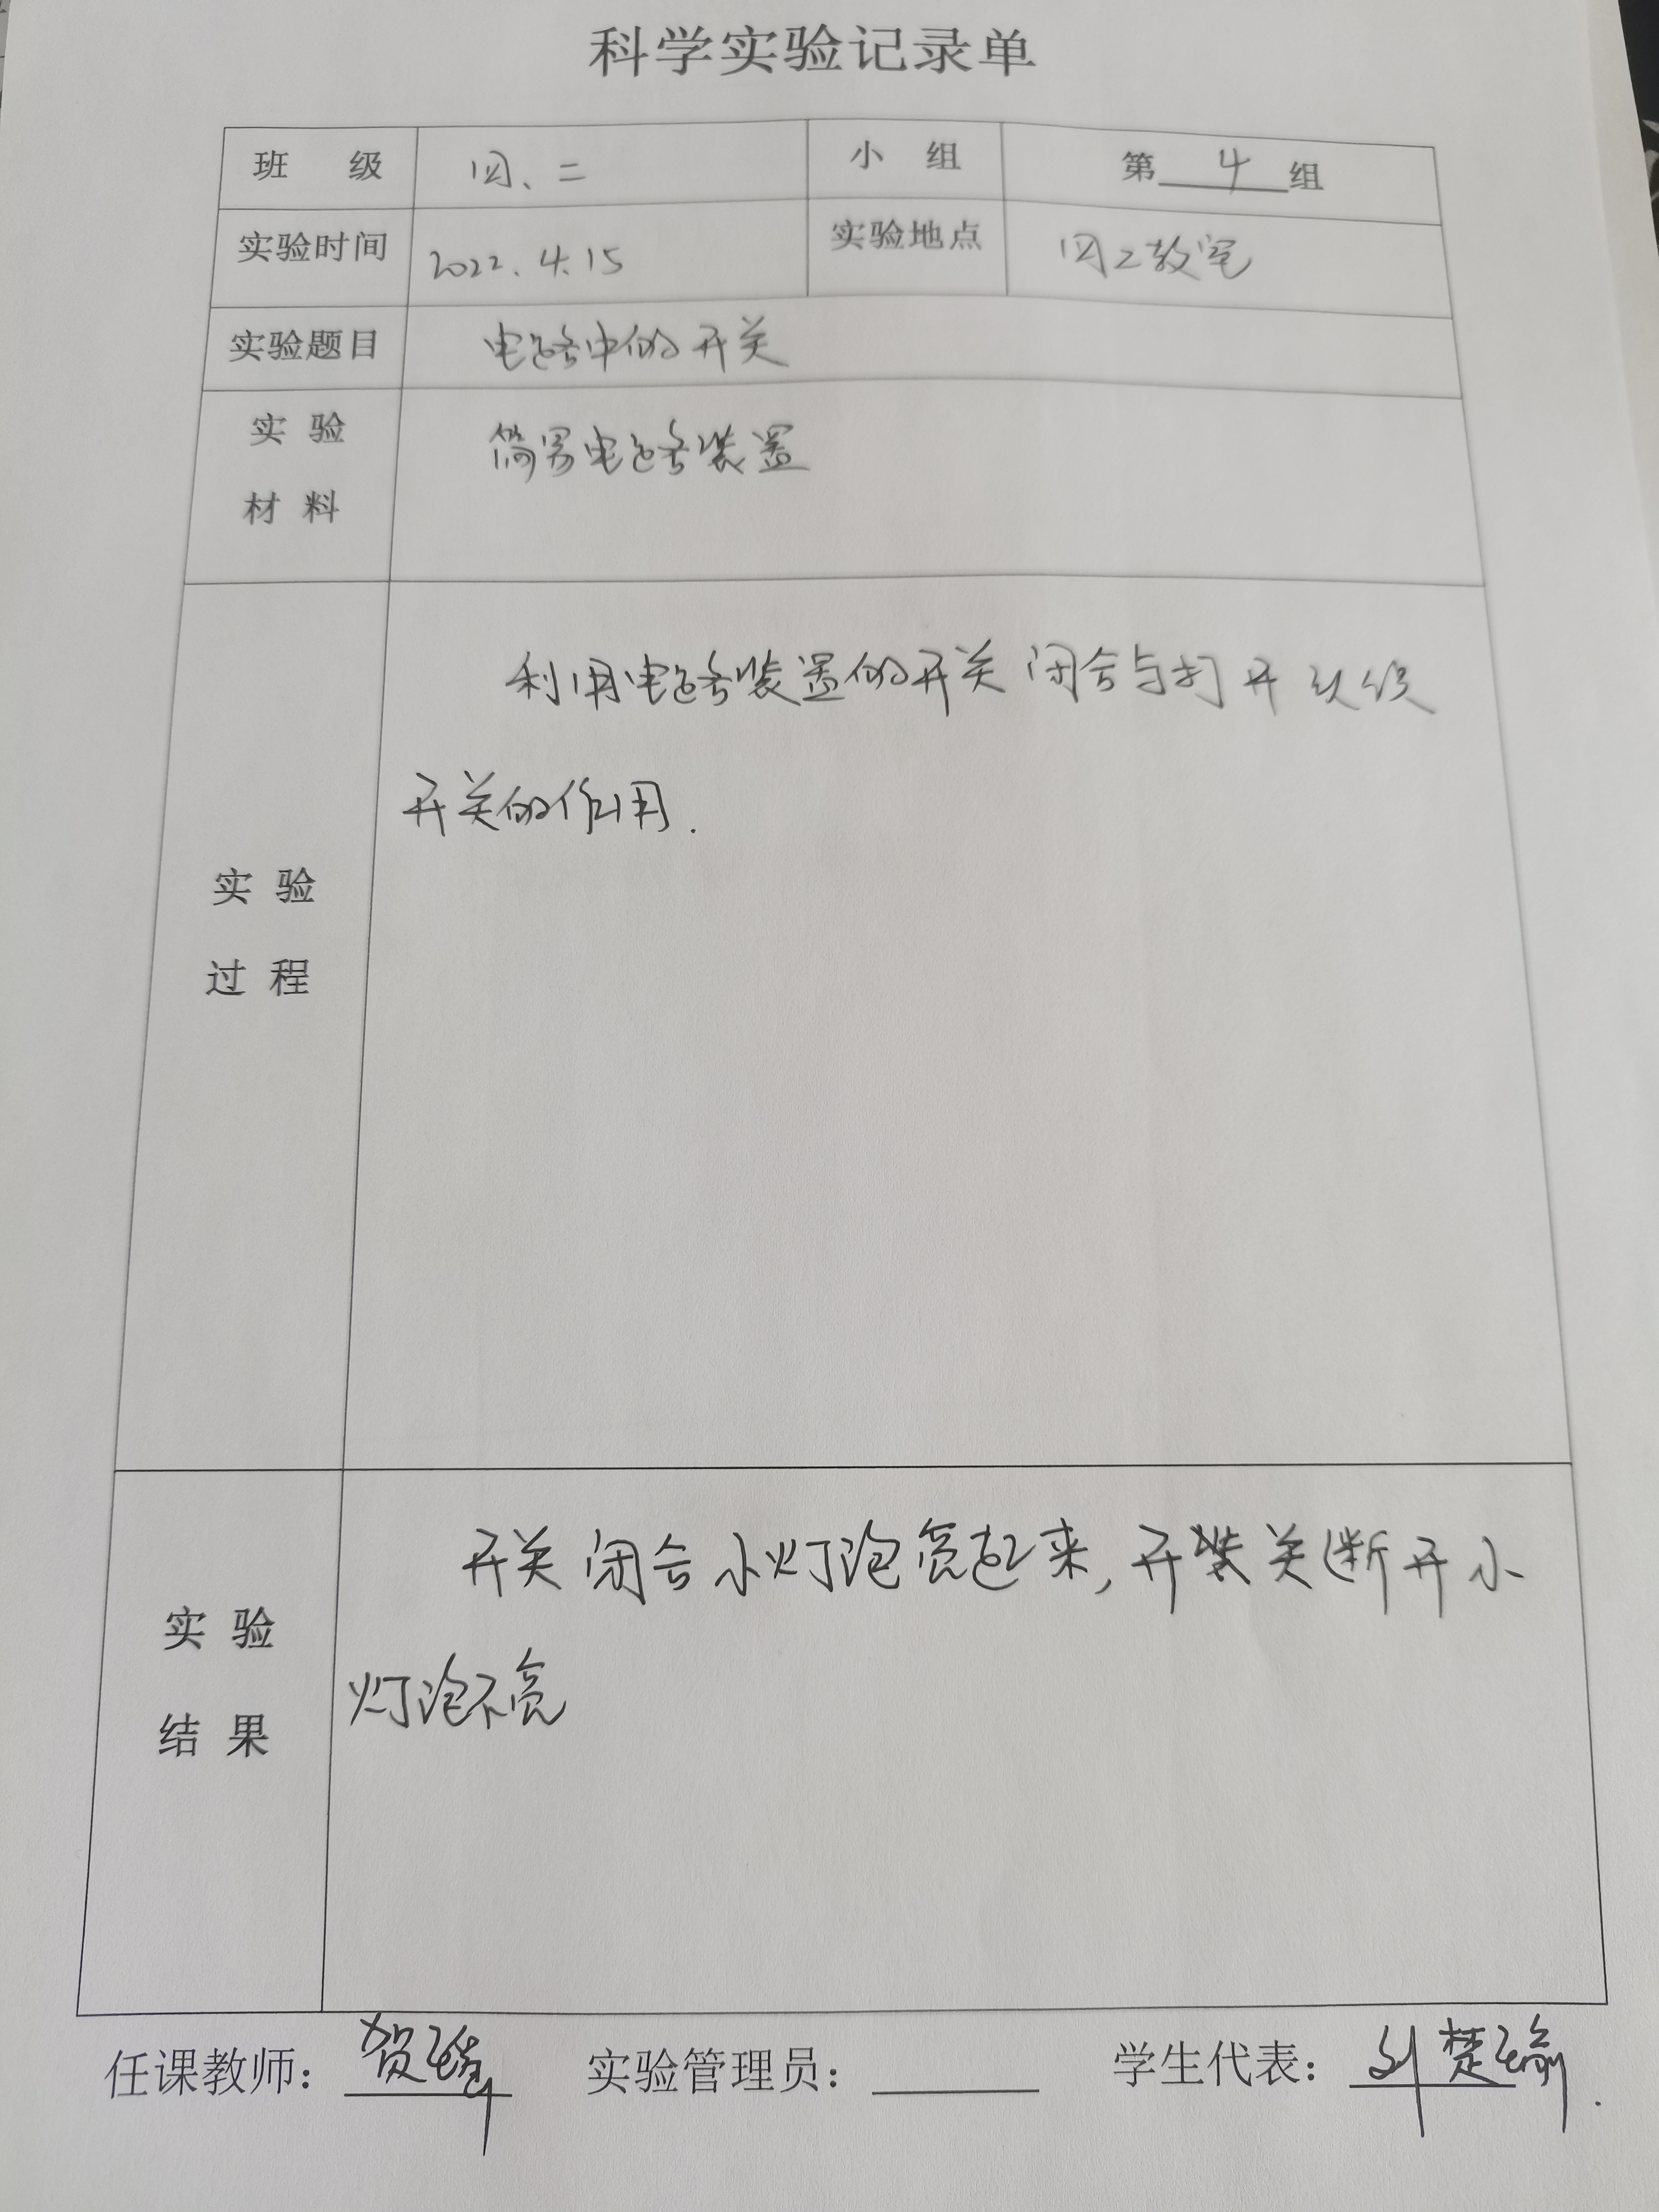 科学实验记录单
班 级 四、二 小 组 第 4 组
实验时间 2022.4.15 实验地点 四2教室
实验题目 电路中的开关
实 验
材 料
简易电路装置
利用电路装置的开关闭合与打开认识
开关的作用.
实 验
过 程
开关闭合小灯泡亮起来,开关断开小
灯泡不亮
实 验
结 果
任课教师: 贺 实验管理员: 学生代表: 刘楚瑜